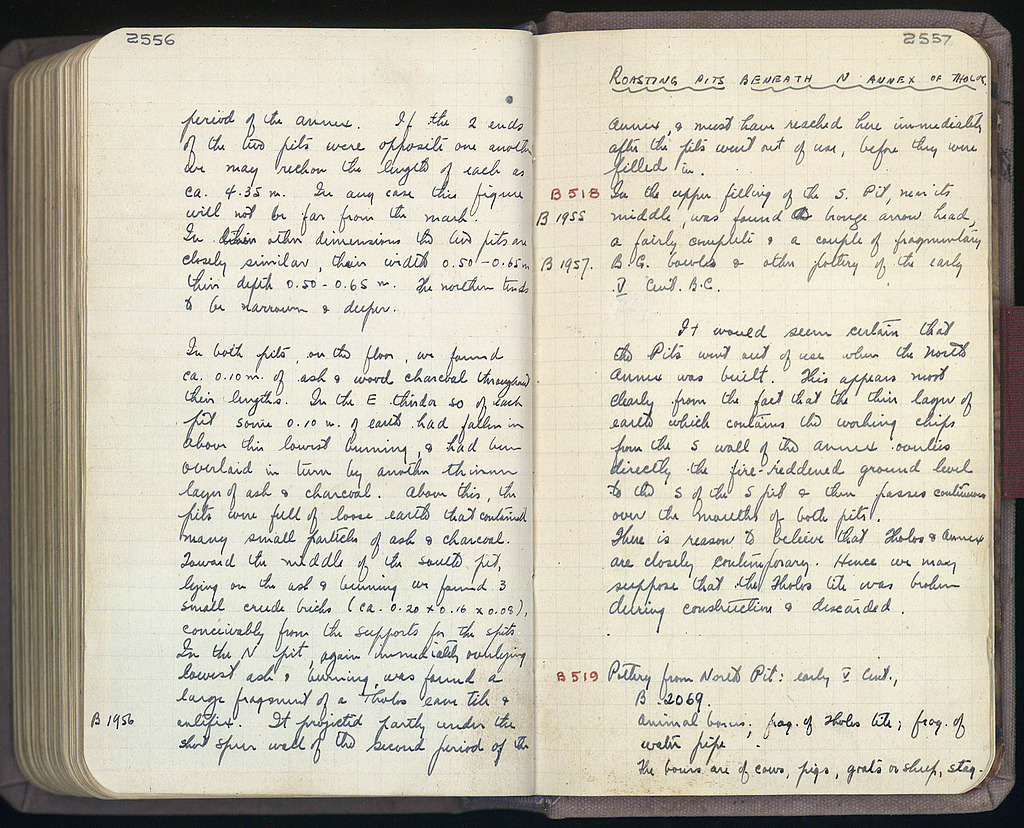 2556
period of the annex. If the 2 ends
of the two pits were opposite one another
we may reckon the length of each as
ca. 4.35 m. In any case this figure
will not be far from the mark.
In other dimensions the two pits are
closely similar, their width 0.50-0.65 m
their depth 0.50-0.65 m. The northern tends
to be narrower & deeper.
In both pits, on the floor, we found
ca. 0.10 m. of ash & wood charcoal throughout
their lengths. In the E third or so of each
pit some 0.10 m. of earth had fallen in
above this lowest burning, & had been
overlaid in turn by another thinner
layer of ash & charcoal. Above this, the
pits were full of loose earth that contained
many small particles of ash & charcoal.
Toward the middle of the south pit,
lying on the ash & burning we found 3
small crude bricks (ca. 0.20 x 0.16 x 0.08),
conceivably from the supports for the spits.
In the N pit, again immediately overlying
lowest ash & burning, was found a
large fragment of a Tholos eave tile &
B 1956 antefix. It projected partly under the
short spur wall of the second period of the
2557
ROASTING PITS BENEATH N ANNEX OF THOLOS.
annex, & must have reached here immediately
after the pits went out of use, before they were
filled in.
B 518 In the upper filling of the S. Pit, near its
B 1955 middle, was found a bronze arrow head,
a fairly complete & a couple of fragmentary
B 1957. B.G. bowls & other pottery of the early
V Cent. B.C.
It would seem certain that
the Pits went out of use when the North
Annex was built. This appears most
clearly from the fact that the thin layer of
earth which contains the working chips
from the S wall of the annex overlies
directly the fire-reddened ground level
to the S of the S pit & then passes continuous
over the mouths of both pits.
There is reason to believe that Tholos & Annex
are closely contemporary. Hence we may
suppose that the Tholos tile was broken
during construction & discarded.
B 519 Pottery from North Pit: early V Cent.,
B 2069.
animal bones; frag. of Tholos tile; frag. of
water pipe.
The bones are of cows, pigs, goats or sheep, stag.